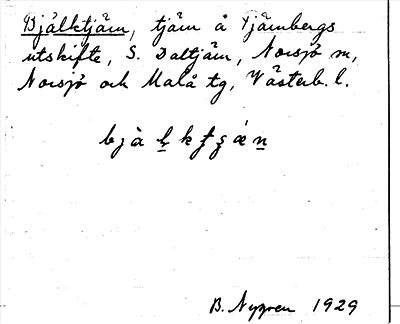 Bjälktjärn, tjärn å Tjärnbergs
utskifte, S. Daltjärn, Norsjö sn,
Norsjö och Malå tg, Västerb. l.
B. Nygren 1929